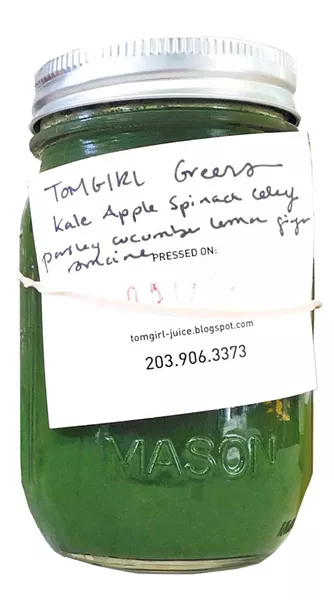 TOMGIRL Greens
Kale Apple Spinach Celery
parsley cucumber lemon ginger
romaine
PRESSED ON:
tomgirl-juice.blogspot.com
203.906.3373
MASON